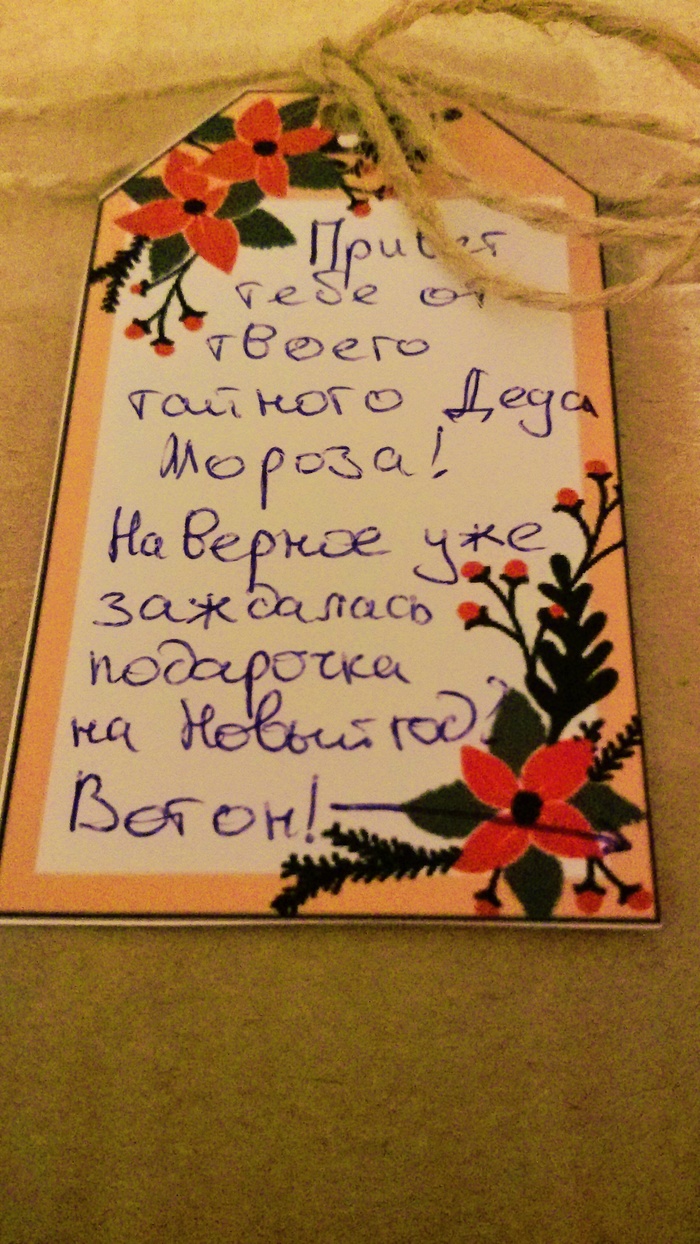 Привет
тебе от
твоего
тайного Деда
Мороза!
Наверное уже
заждалась
подарочка
на Новый год?
Вот он!